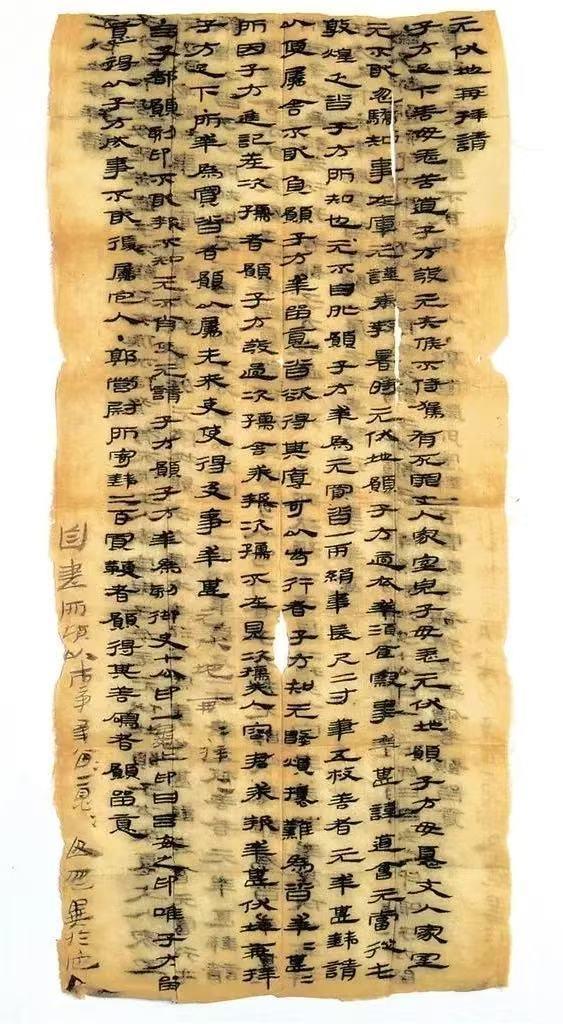 元伏地再拜請
子方足下善毋恙苦道子方發元失候不侍駕有死罪丈人家室兒子毋恙元伏地願子方毋憂丈人家室
元不敢忽驕知事在庫元謹奉教暑時元伏地願子方適衣幸酒食察事幸甚謹道會元當從屯
敦煌乏沓子方所知也元不自外願子方幸為元買沓一兩絹韋長尺二寸筆五枚善者元幸甚錢請
以便屬舍不敢負願子方幸留意沓欲得其厚可以步行者子方知元數煩擾難為沓幸=甚=
所因子方進記差次孺者願子方發過次孺舍求報次孺不在見次孺夫人容君求報幸甚伏地再拜
子方足下 所幸為買沓者願以屬先來吏使得及事幸甚 元伏地再=拜=
吕子都願刻印不敢報不知元不肖使元請子方願子方幸為刻御史七分印一龜上印曰吕安之印唯子方留
意得以子方成事不敢復屬它人・郭營尉所寄錢二百買鞭者願得其善鳴者願留意
自書所願以市事幸=留=意=毋忽異於它人